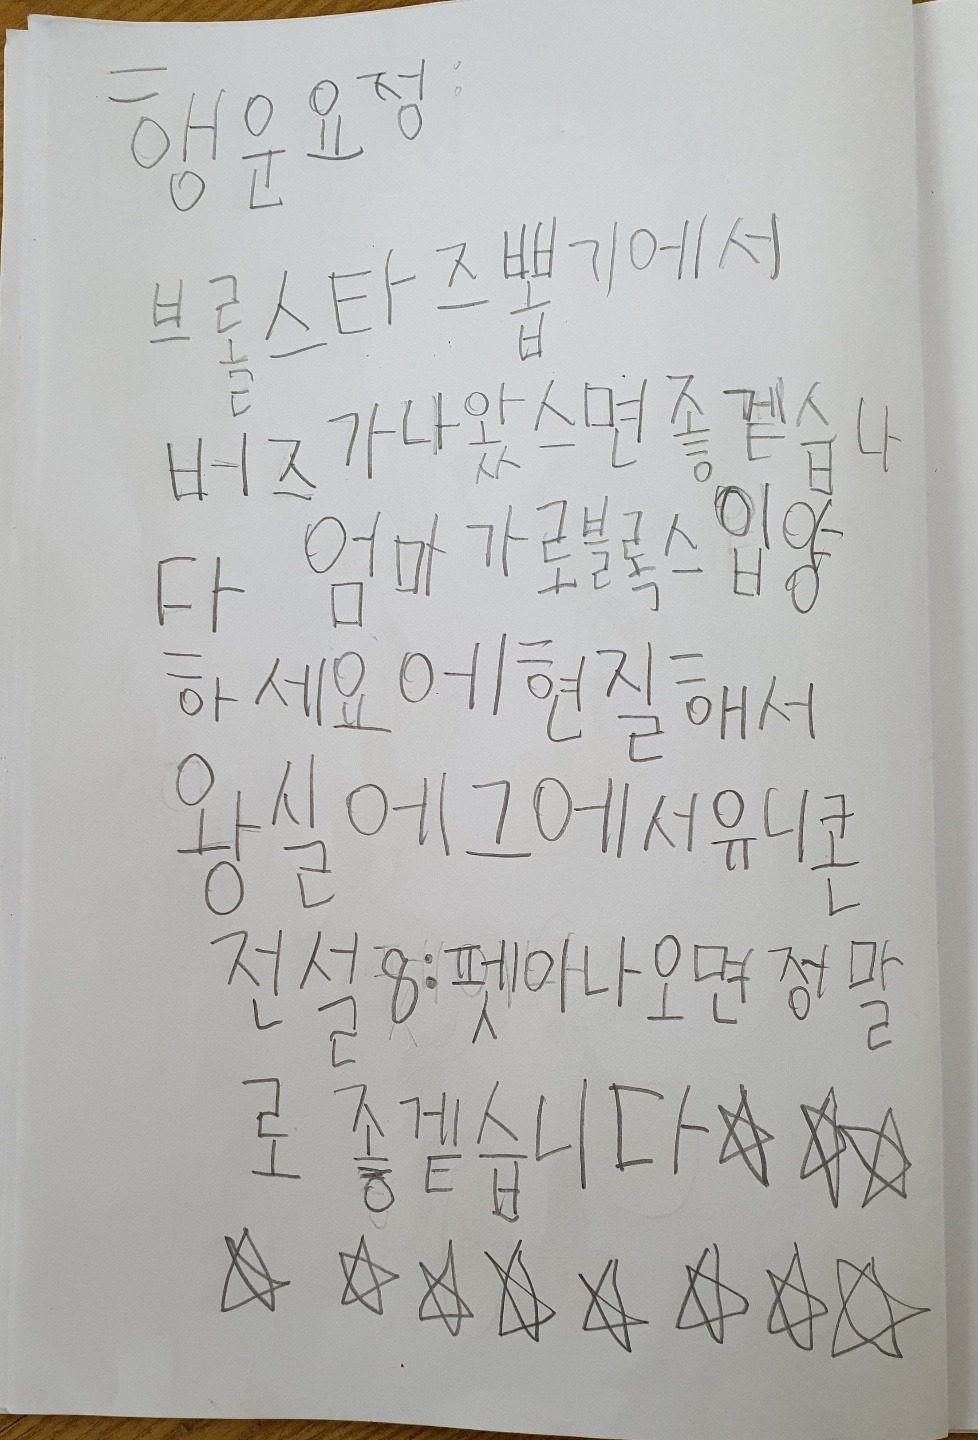 행운요정:
브롤스타즈뽑기에서
버즈가나왔스면좋겥습나
다 엄마가로블록스입양
하세요에현질해서
왕실에그에서유니콘
전설8:펫이나오면정말
로좋겥습니다☆☆☆
☆☆☆☆☆☆☆☆